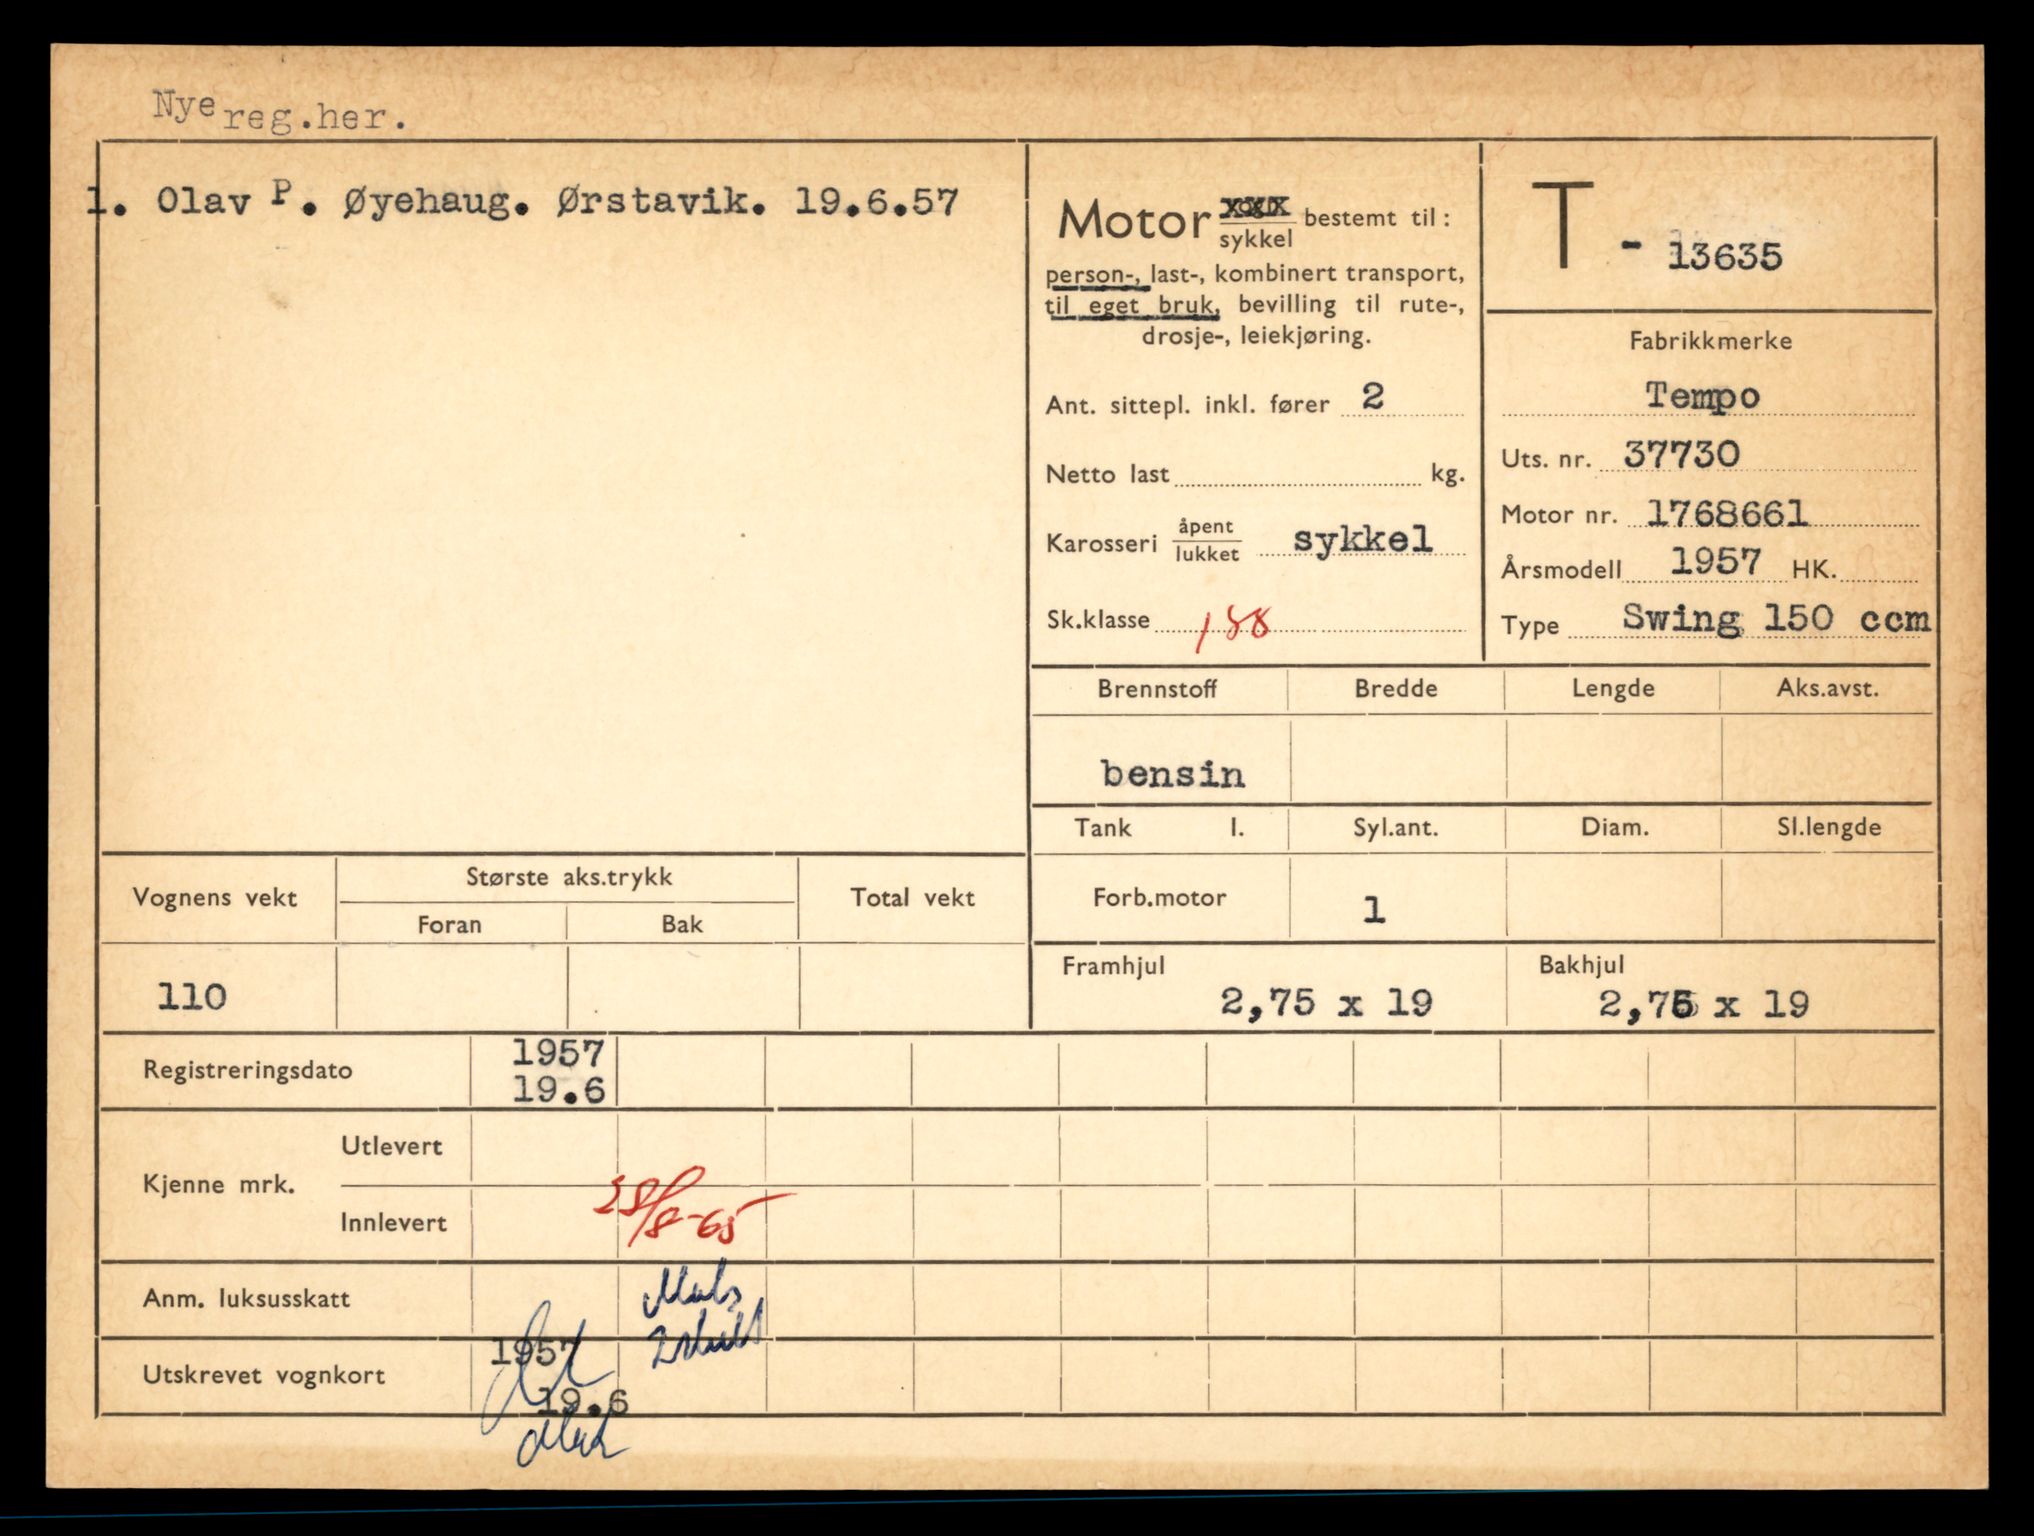 Nye reg.her.
1. Olav P. Øyehaug. Ørstavik. 19.6.57
Motor vogn bestemt til:
sykkel
person-, last-, kombinert transport,
til eget bruk, bevilling til rute-,
drosje-, leiekjøring.
Ant. sittepl. inkl. fører 2
Netto last kg.
Karosseri åpent lukket sykkel
Sk.klasse 188
T - 13635
Fabrikkmerke
Tempo
Uts. nr. 37730
Motor nr. 1768661
Årsmodell 1957 HK.
Type Swing 150 ccm
Brennstoff Bredde Lengde Aks.avst.
bensin
Tank l. Syl.ant. Diam. Sl.lengde
Forb.motor 1
Framhjul Bakhjul
2,75 x 19 2,75 x 19
Vognens vekt Største aks.trykk Total vekt
Foran Bak
110
Registreringsdato 1957
19.6
Utlevert
Kjenne mrk.
Innlevert 28/8-65
Anm. luksusskatt
Utskrevet vognkort 1957
19.6